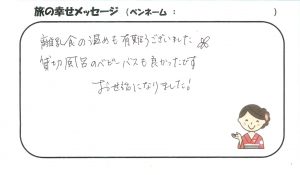 旅の幸せメッセージ（ペンネーム： ）
離乳食の温めも有難うございました
貸切風呂のベビーバスも良かったです
お世話になりました！